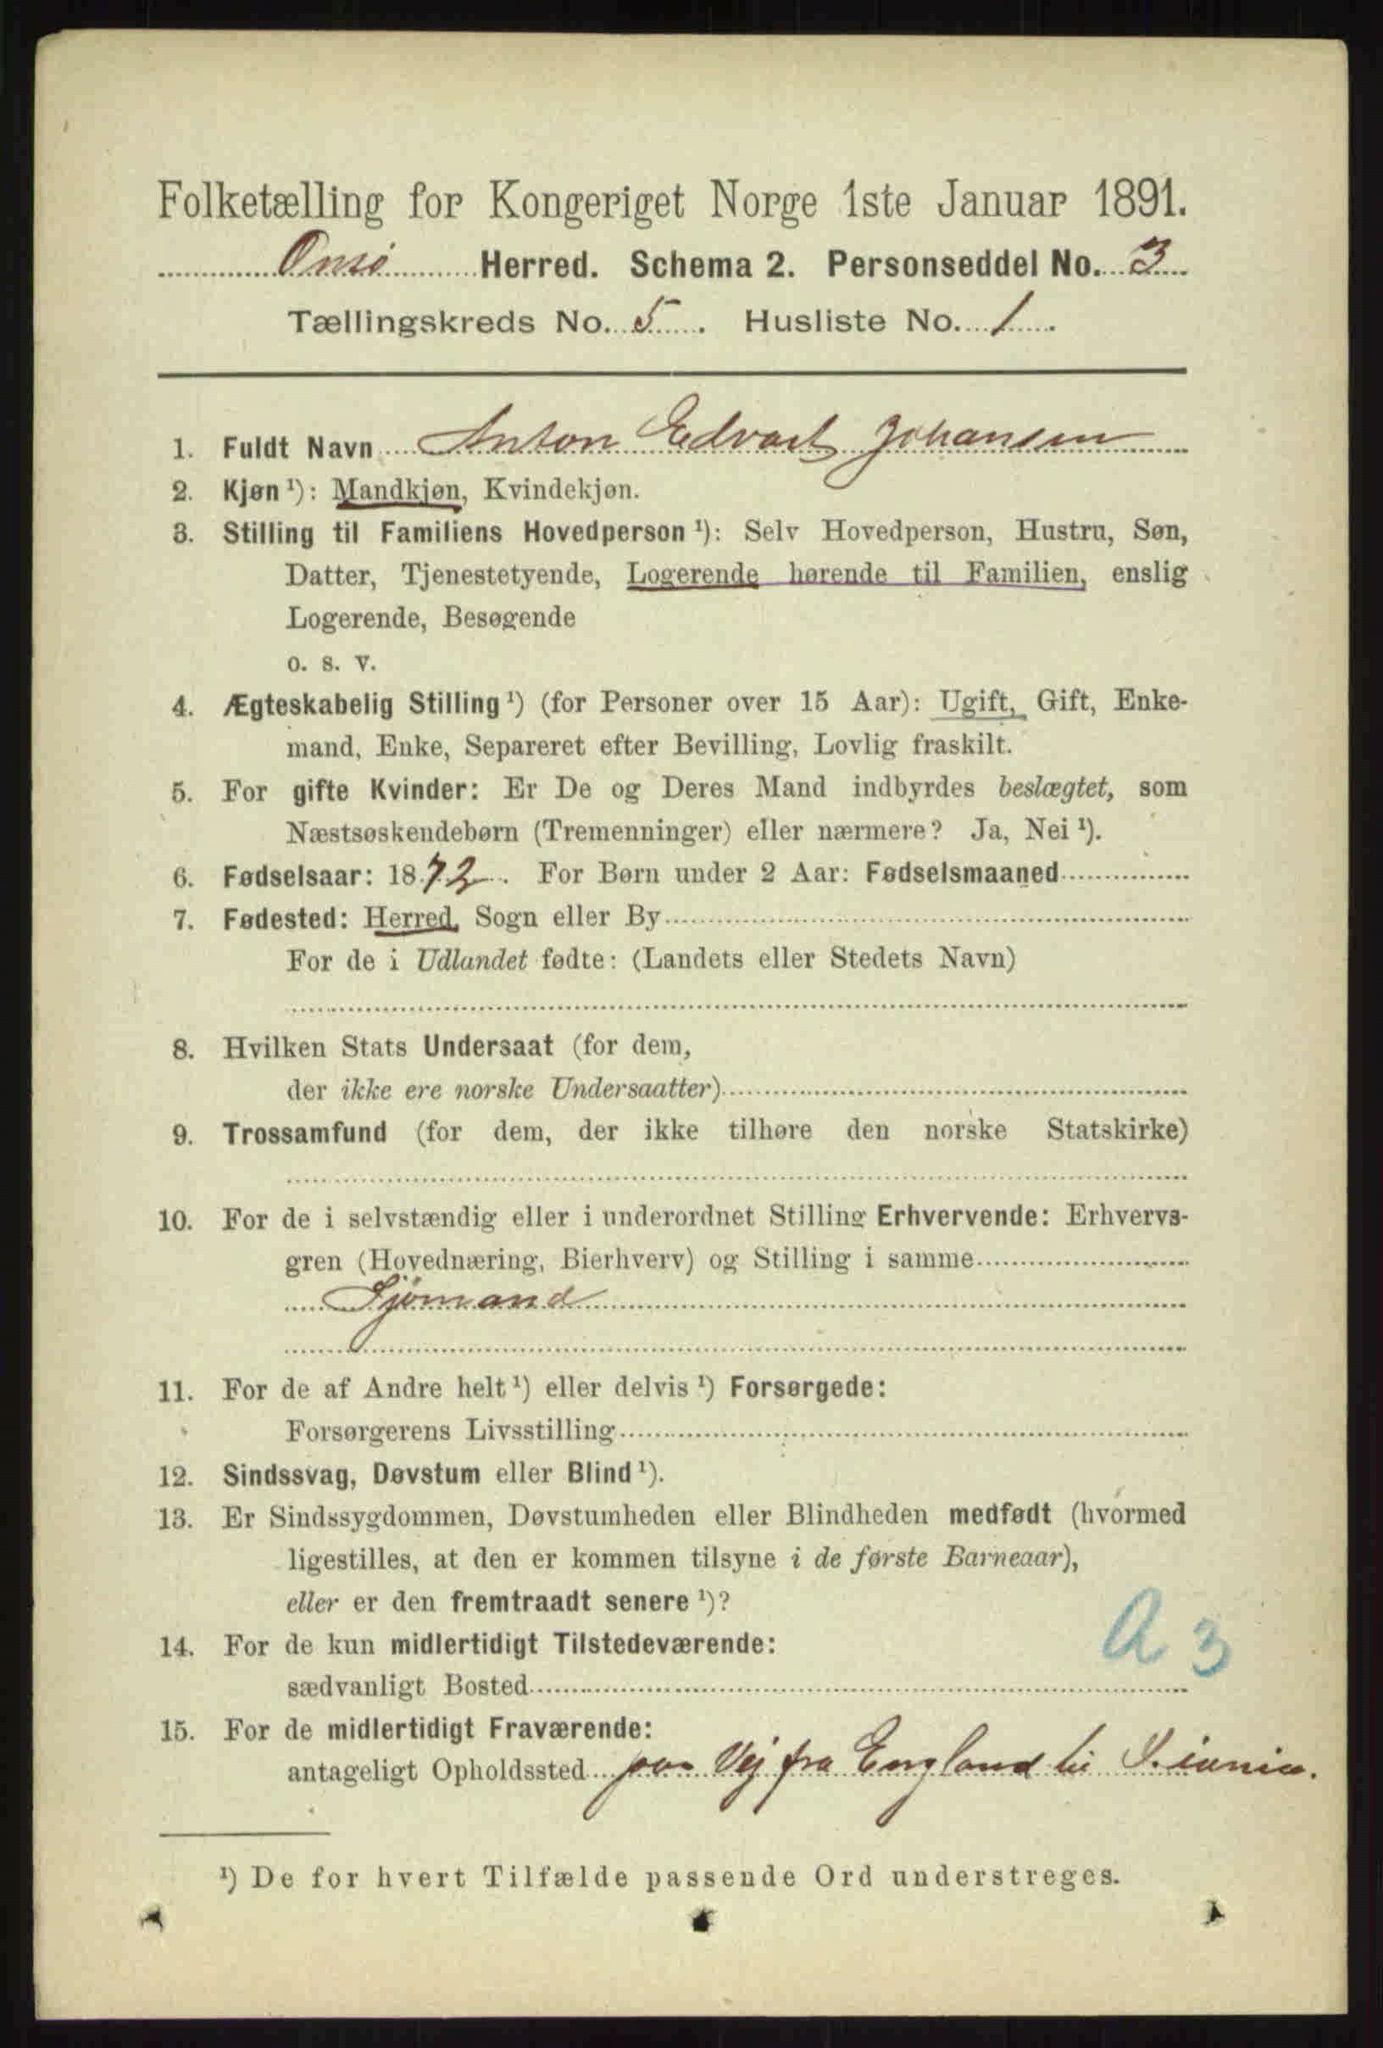 Folketælling for Kongeriget Norge 1ste Januar 1891.
Onsø Herred. Schema 2. Personseddel No. 3
Tællingskreds No. 5. Husliste No. 1.
1. Fuldt Navn Anton Edvart Johansen
2. Kjøn ¹): Mandkjøn, Kvindekjøn.
3. Stilling til Familiens Hovedperson ¹): Selv Hovedperson, Hustru, Søn,
Datter, Tjenestetyende, Logerende hørende til Familien, enslig
Logerende, Besøgende
o. s. v.
4. Ægteskabelig Stilling ¹) (for Personer over 15 Aar): Ugift, Gift, Enke-
mand, Enke, Separeret efter Bevilling, Lovlig fraskilt.
5. For gifte Kvinder: Er De og Deres Mand indbyrdes beslægtet, som
Næstsøskendebørn (Tremenninger) eller nærmere? Ja, Nei ¹).
6. Fødselsaar: 1872. For Børn under 2 Aar: Fødselsmaaned
7. Fødested: Herred, Sogn eller By
For de i Udlandet fødte: (Landets eller Stedets Navn)
8. Hvilken Stats Undersaat (for dem,
der ikke ere norske Undersaatter)
9. Trossamfund (for dem, der ikke tilhøre den norske Statskirke)
10. For de i selvstændig eller i underordnet Stilling Erhvervende: Erhvervs-
gren (Hovednæring, Bierhverv) og Stilling i samme
Sjømand
11. For de af Andre helt ¹) eller delvis ¹) Forsørgede:
Forsørgerens Livsstilling
12. Sindssvag, Døvstum eller Blind ¹).
13. Er Sindssygdommen, Døvstumheden eller Blindheden medfødt (hvormed
ligestilles, at den er kommen tilsyne i de første Barneaar),
eller er den fremtraadt senere ¹)?
14. For de kun midlertidigt Tilstedeværende:
sædvanligt Bosted
A 3
15. For de midlertidigt Fraværende:
antageligt Opholdssted paa Vej fra England til
¹) De for hvert Tilfælde passende Ord understreges.